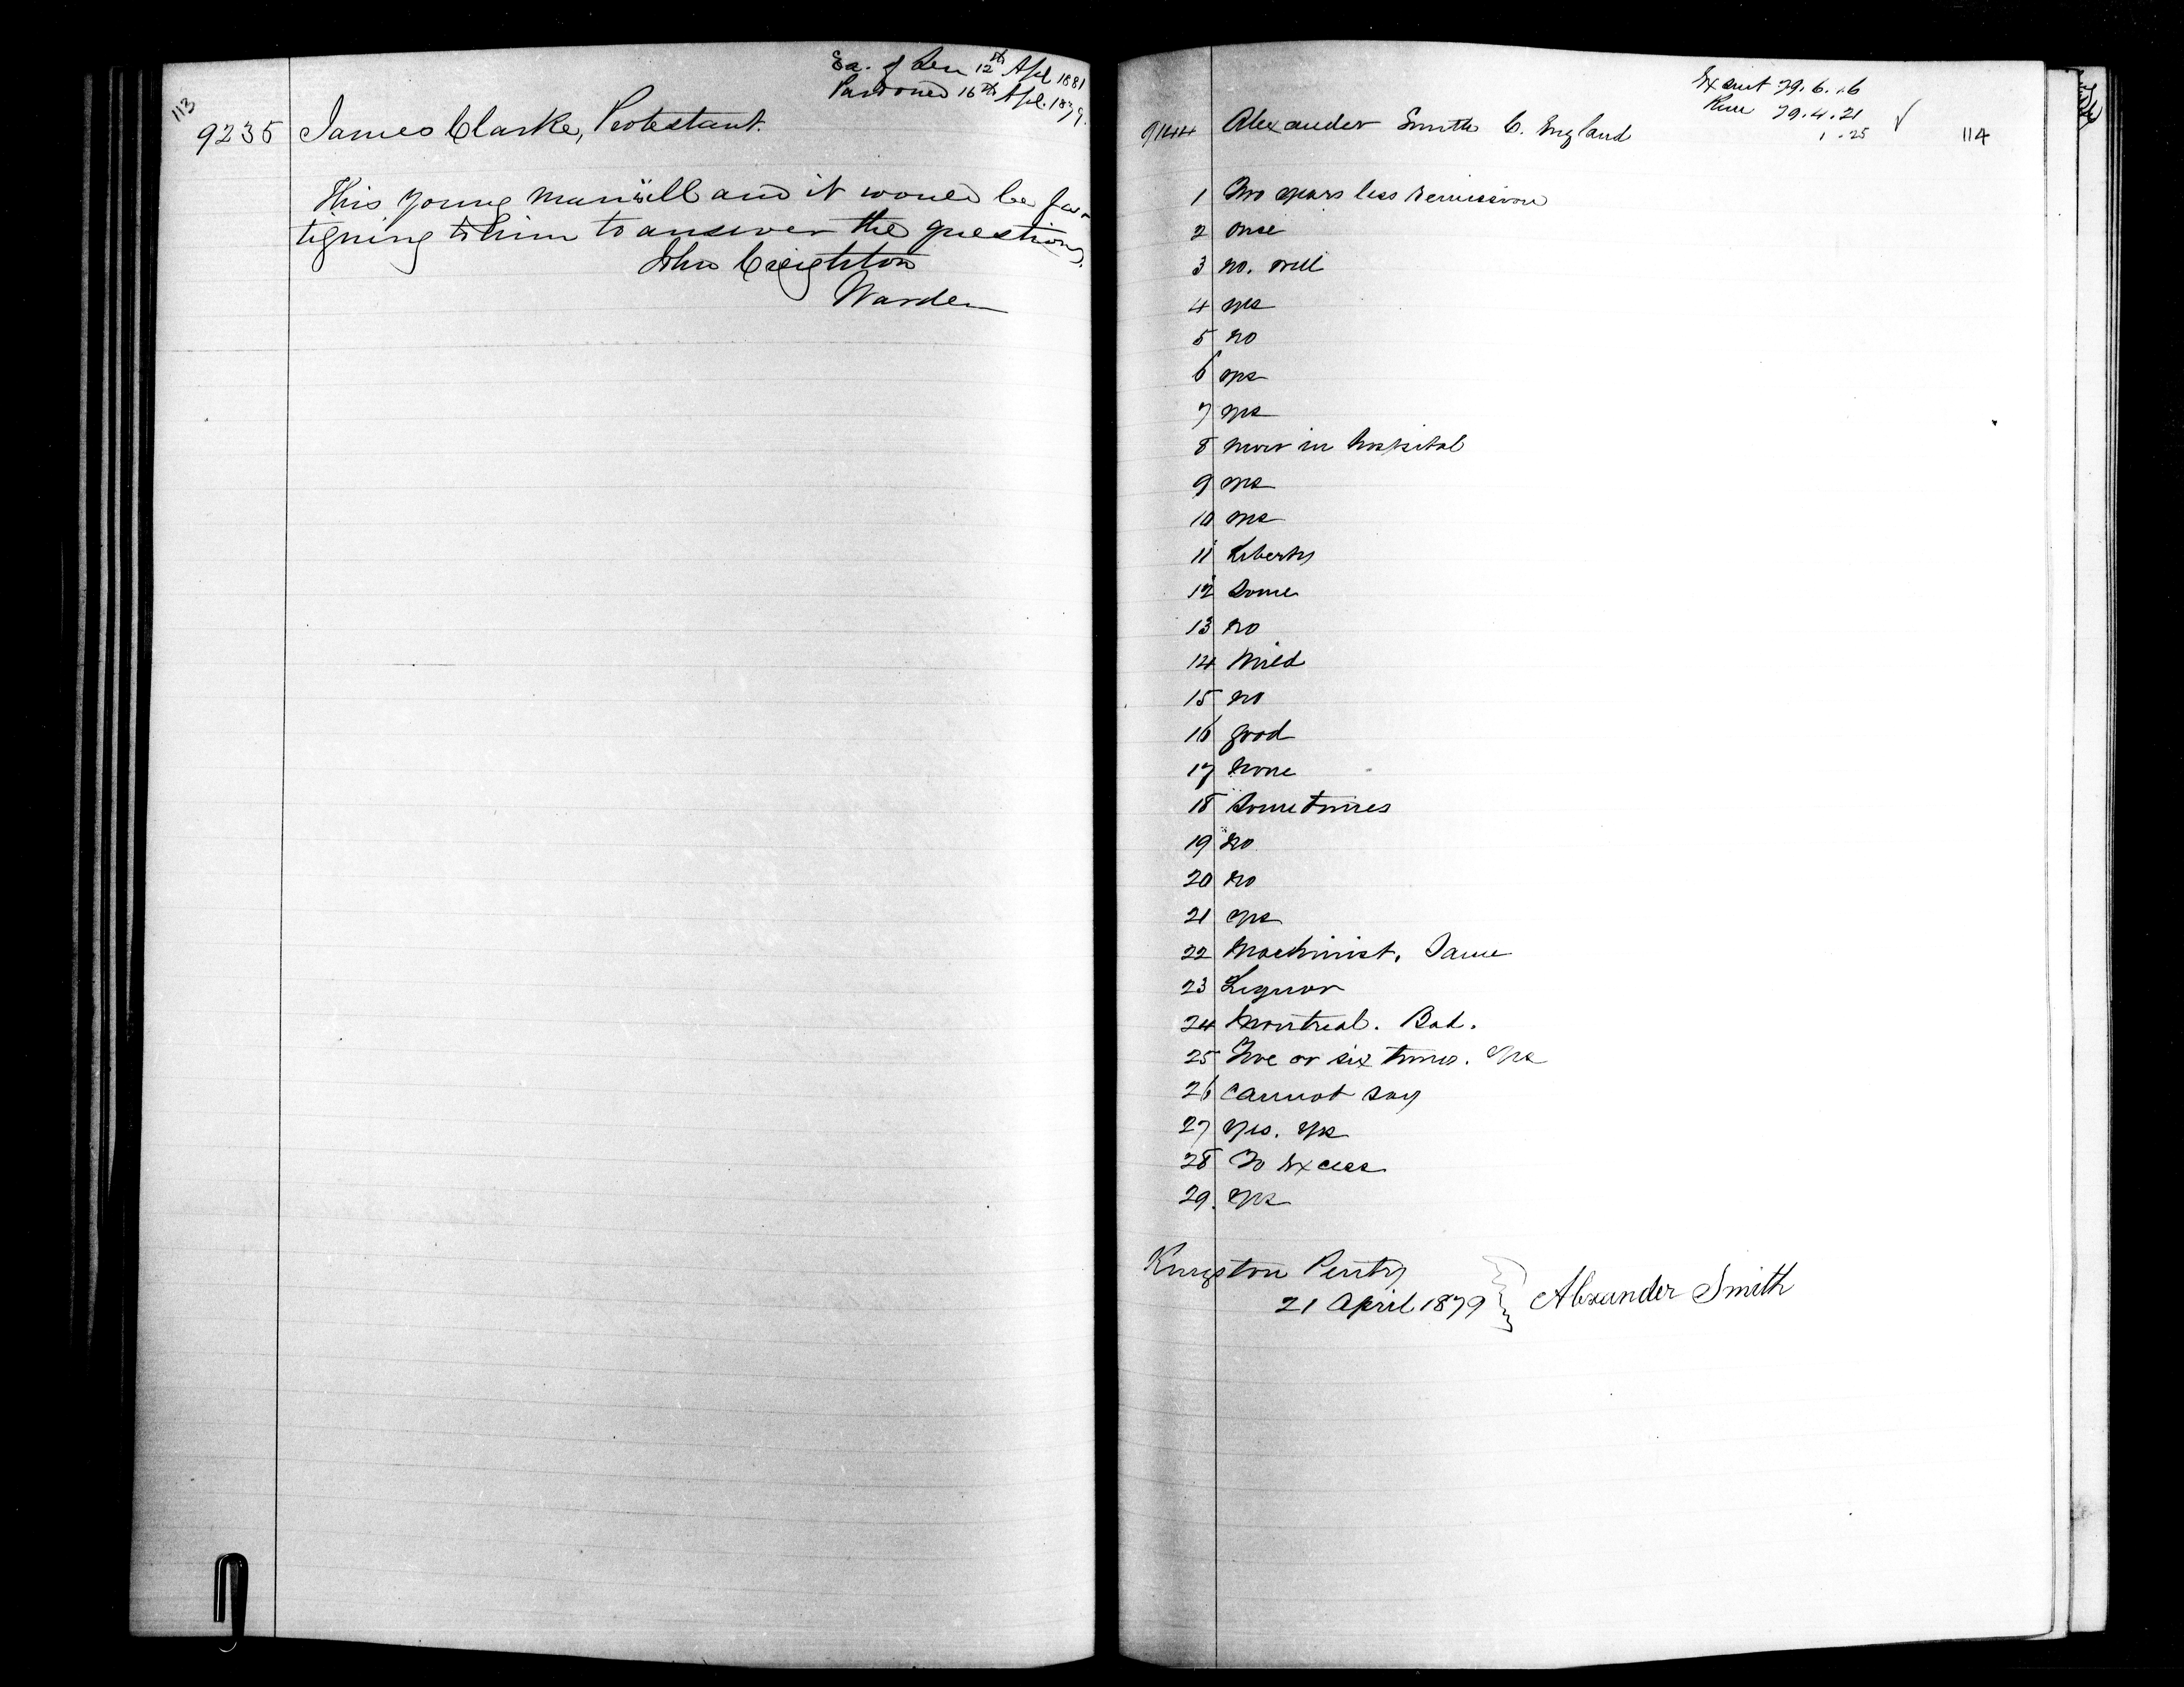 113
Ex. of Sen 12th Apl 1881
Pardoned 16th Apl. 1879.
9235 James Clarke, Protestant.
This young man is ill and it would be fa-
tiguing to him to answer the questions.
John Creighton
Warden
Ex sent 79.6.16
Rem 79.4.21
1.25
114
9144 Alexander Smith C. England
1 Two years less remission
2 Once
3 no. well
4 yes
5 no
6 yes
7 yes
8 now in hospital
9 yes
10 yes
11 Liberty
12 Some
13 no
14 Mild
15 no
16 good
17 none
18 Sometimes
19 no
20 no
21 yes
22 Machinist. Same
23 Liquor
24 Montreal. Bad.
25 Five or six times. Yes
26 Cannot say
27 Yes. Yes
28 To Excess
29. Yes
Kingston Penty
21 April 1879 } Alexander Smith